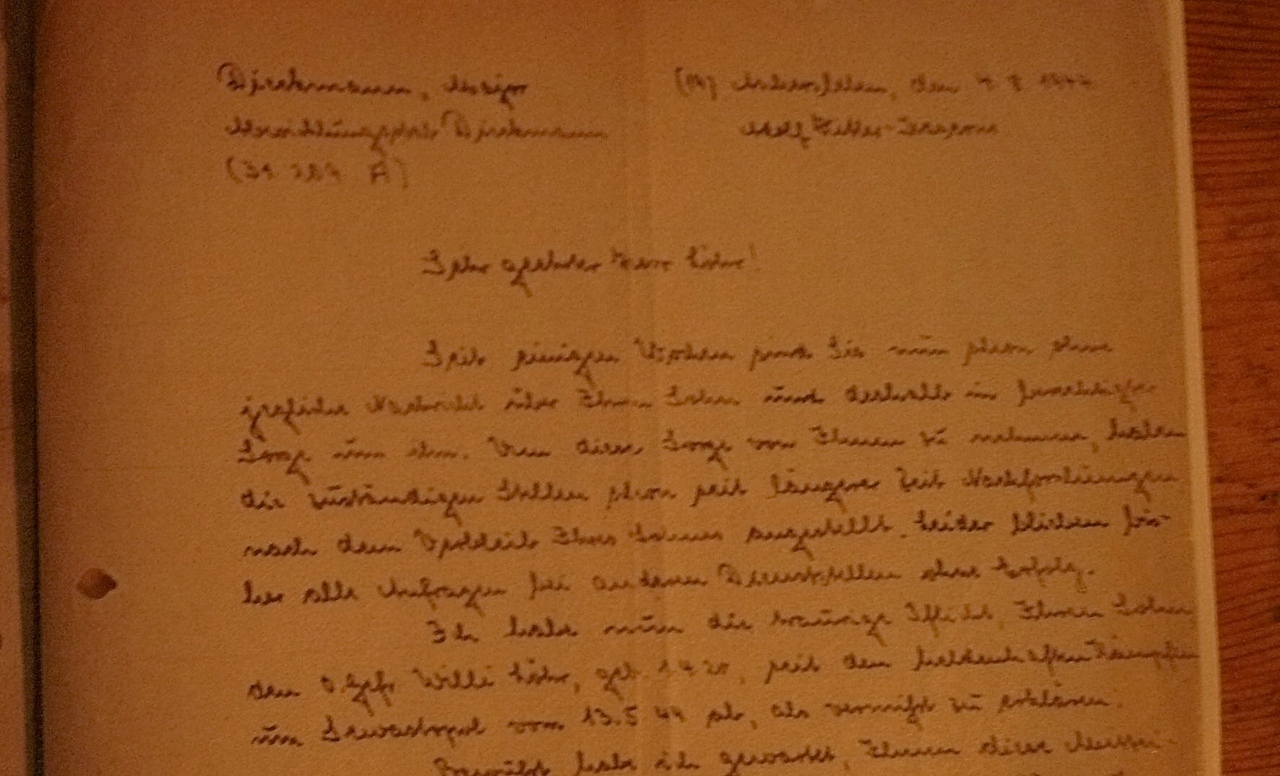 Dieckmann, Major (19) Aschersleben, den 4. 8. 1944
Abwicklungsstab Dieckmann Adolf Hitler-Kaserne
(31 209 A)
Sehr geehrter Herr Löhr!
Seit einigen Wochen sind Sie nun schon ohne
jegliche Nachricht über Ihren Sohn und deshalb in
Sorge um ihn. Um diese Sorge von Ihnen zu nehmen, haben
die zuständigen Stellen schon seit längerer Zeit Nachforschungen
nach dem Verbleib Ihres Sohnes angestellt. Leider blieben bis-
her alle Anfragen bei anderen Dienststellen ohne Erfolg.
Ich habe nun die traurige Pflicht, Ihren Sohn
den O.Gefr. Willi Löhr, geb. 1.4.20, seit den heldenhaften Kämpfen
um Sewastopol vom 13.5.44 ab, als vermißt zu erklären.
Bewußt habe ich gewartet, Ihnen diese Mittei-